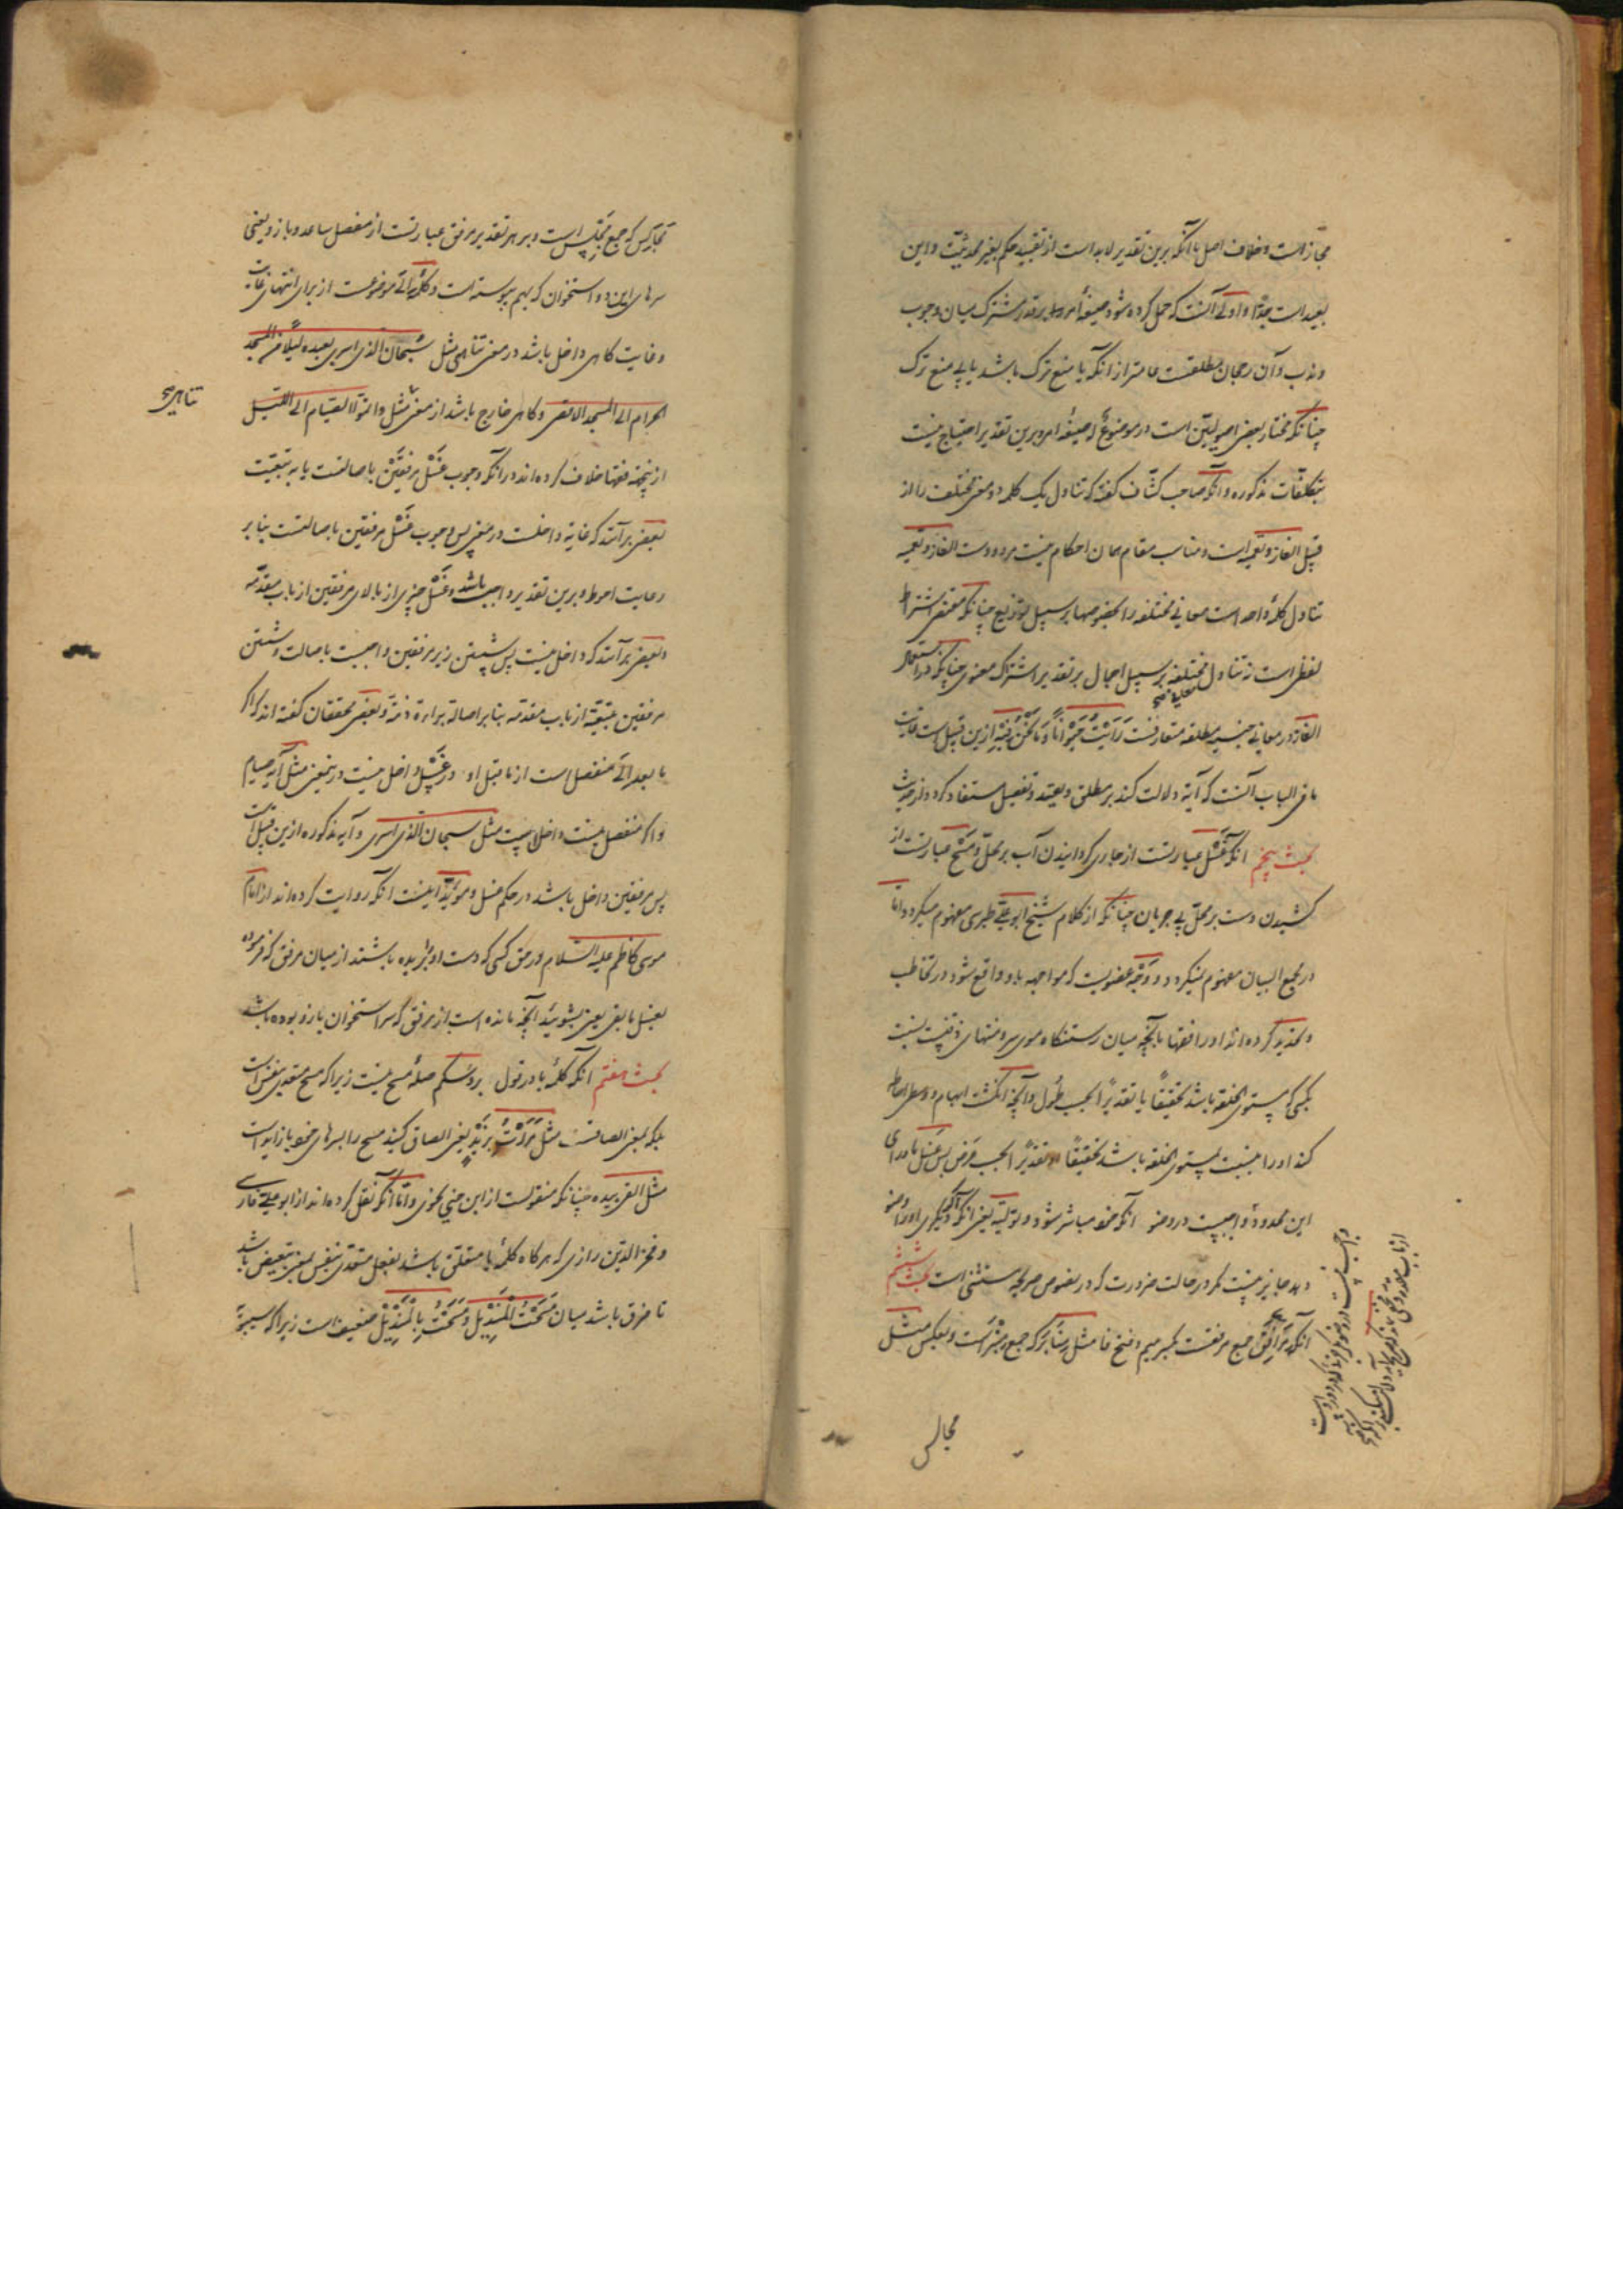 مجاز است و خلاف اصل با آنکه برین تقدیر لابد است از تقیید حکم بغیر محدثیت و این
بعید است جدّا و اولی آنست که حمل کرده شود صیغهٔ امر را بر قدر مشترک میان وجوب
و ندب و آن رجحان مطلقست عامتر از آنکه با منع ترک باشد یا بی منع ترک
چنانکه مختار بعضی اصولیین است در موضوع له صیغهٔ امر و برین تقدیر احتیاج نیست
بتکلفات مذکوره و آنکه صاحب کشّاف گفته که تناول یک کلمه دو معنی مختلف را از
قبیل الغاز و تعمیه است و مناسب مقام بیان احکام نیست مردودست الغاز و تعمیه
تناول کلمهٔ واحد است معانی مختلفه را بخصوصها بر سبیل توزیع چنانکه مقتضی اشتراک
لفظی است نه تناول مختلفه بر سبیل اجمال بر تقدیر اشتراک معنوی چنانکه در استعمال
الفاظ در معانی جنسیه مطلقه متعارفست رَأَیْتُ حَیَوَاناً وَ مَا نَحْنُ فِیْهِ ازین قبیل است غایت
ما فی الباب آنست که آیة دلالت کند بر مطلق و تقیید و تفصیل مستفاد گردد از حدیث
بحث پنجم آنکه غَسْل عبارتست از جاری گردانیدن آب بر محلّ و مَسْح عبارتست از
کشیدن دست بر محلّ بی جریان چنانکه از کلام شیخ ابو علی طبرسی مفهوم میگردد و امّا
در مجمع البیان مفهوم نمیگردد و وَجْه عضویست که مواجهه باو واقع شود در تخاطب
و تحدید کرده‌اند او را فقها بآنچه میان رستنگاه موی سر و منتهای ذقنست نسبت
بکسی که مستوی الخلقه باشد تحقیقًا یا تقدیرًا بحسب طُول و آنچه انگشت ابهام و وسطی احاطه
کند او را نسبت بمستوی الخلقه باشد تحقیقًا او تقدیرًا بحسب عَرْض پس غَسْل ماورای
این محدود واجب نیست در وضو آنکه خود مباشر شود و تولیة یعنی آنکه دیگری او را وضو
دهد جایز نیست مگر در حالت ضرورت که در نصوص صریحه مستثنی است بحث ششم
آنکه مَرَافِقَ جمع مرفقست بکسر میم و فتح فا مثل مَنَابِر که جمع مِنْبَر است و بعکس مثل
مجالس
مَجَالِس که جمع مَجْلِس است و بر هر تقدیر مرفق عبارتست از مفصل ساعد و بازو یعنی
سرهای این دو استخوان که بهم پیوسته است و کلمهٔ اِلَی موضوعست از برای انتهای غایت
و غایت گاهی داخل باشد در معنی تناهی مثل سُبْحَانَ الَّذِی اسری بعبده لیلًا من المسجد
الحرام الی المسجد الاقصی و گاهی خارج باشد از معنی مثل و اتمّوا الصیام الی اللیل
تناهی صح
ازینجهة فقها خلاف کرده‌اند در آنکه وجوب غَسْل مرفقَیْن باصالتست یا به تبعیّت
بعضی برآنند که غایة داخلست در معنی پس وجوب غَسْل مرفقین باصالتست بنابر
رعایت احوط و برین تقدیر واجب باشد غَسْل چیزی از بالای مرفقین از باب مقدّمه
و بعضی برآنند که داخل نیست پس شستن زیر مرفقین واجبست باصالت و شستن
مرفقین بتبعیّة از باب مقدّمه بنابر اصالة براءة ذمّة و بعضی محققان گفته‌اند که اگر
ما بعد اِلَی منفصل است از ما قبل او در غَسْل داخل نیست در معنی مثل آیة صیام
و اگر منفصل نیست داخل است مثل سبحان الّذی اسری و آیه مذکوره ازین قبیل است
پس مرفقین داخل باشد در حکم غسل و مؤیّد اینست آنکه روایت کرده‌اند از امام
موسی کاظم علیه السّلام در حق کسی که دست او بُریده باشند از میان مرفق که فرموده
یغسل ما بقی یعنی بشوئید آنچه مانده است از مرفق که سر استخوان بازو بوده باشد
بحث هفتم آنکه کلمهٔ با در قول بروسکم صلهٔ مسح نیست زیرا که مسح متعدی بنفس است
بلکه بمعنی الصاقست مثل مَرَرْتُ بِزَیْدٍ یعنی الصاق کنید مسح را بسرهای خود یا زاید است
مثل القی بیده چنانکه منقولست از ابن جنی نحوی و امّا آنکه نقل کرده‌اند از ابو علی فارسی
و فخر الدّین رازی که هرگاه کلمهٔ با متعلق باشد بفعل متعدی بنفس بمعنی تبعیض باشد
تا فرق باشد میان مَسَحْتُ الْمِنْدِیْلَ وَ مَسَحْتُ بِالْمِنْدِیْلِ ضعیف است زیرا که سیبویه